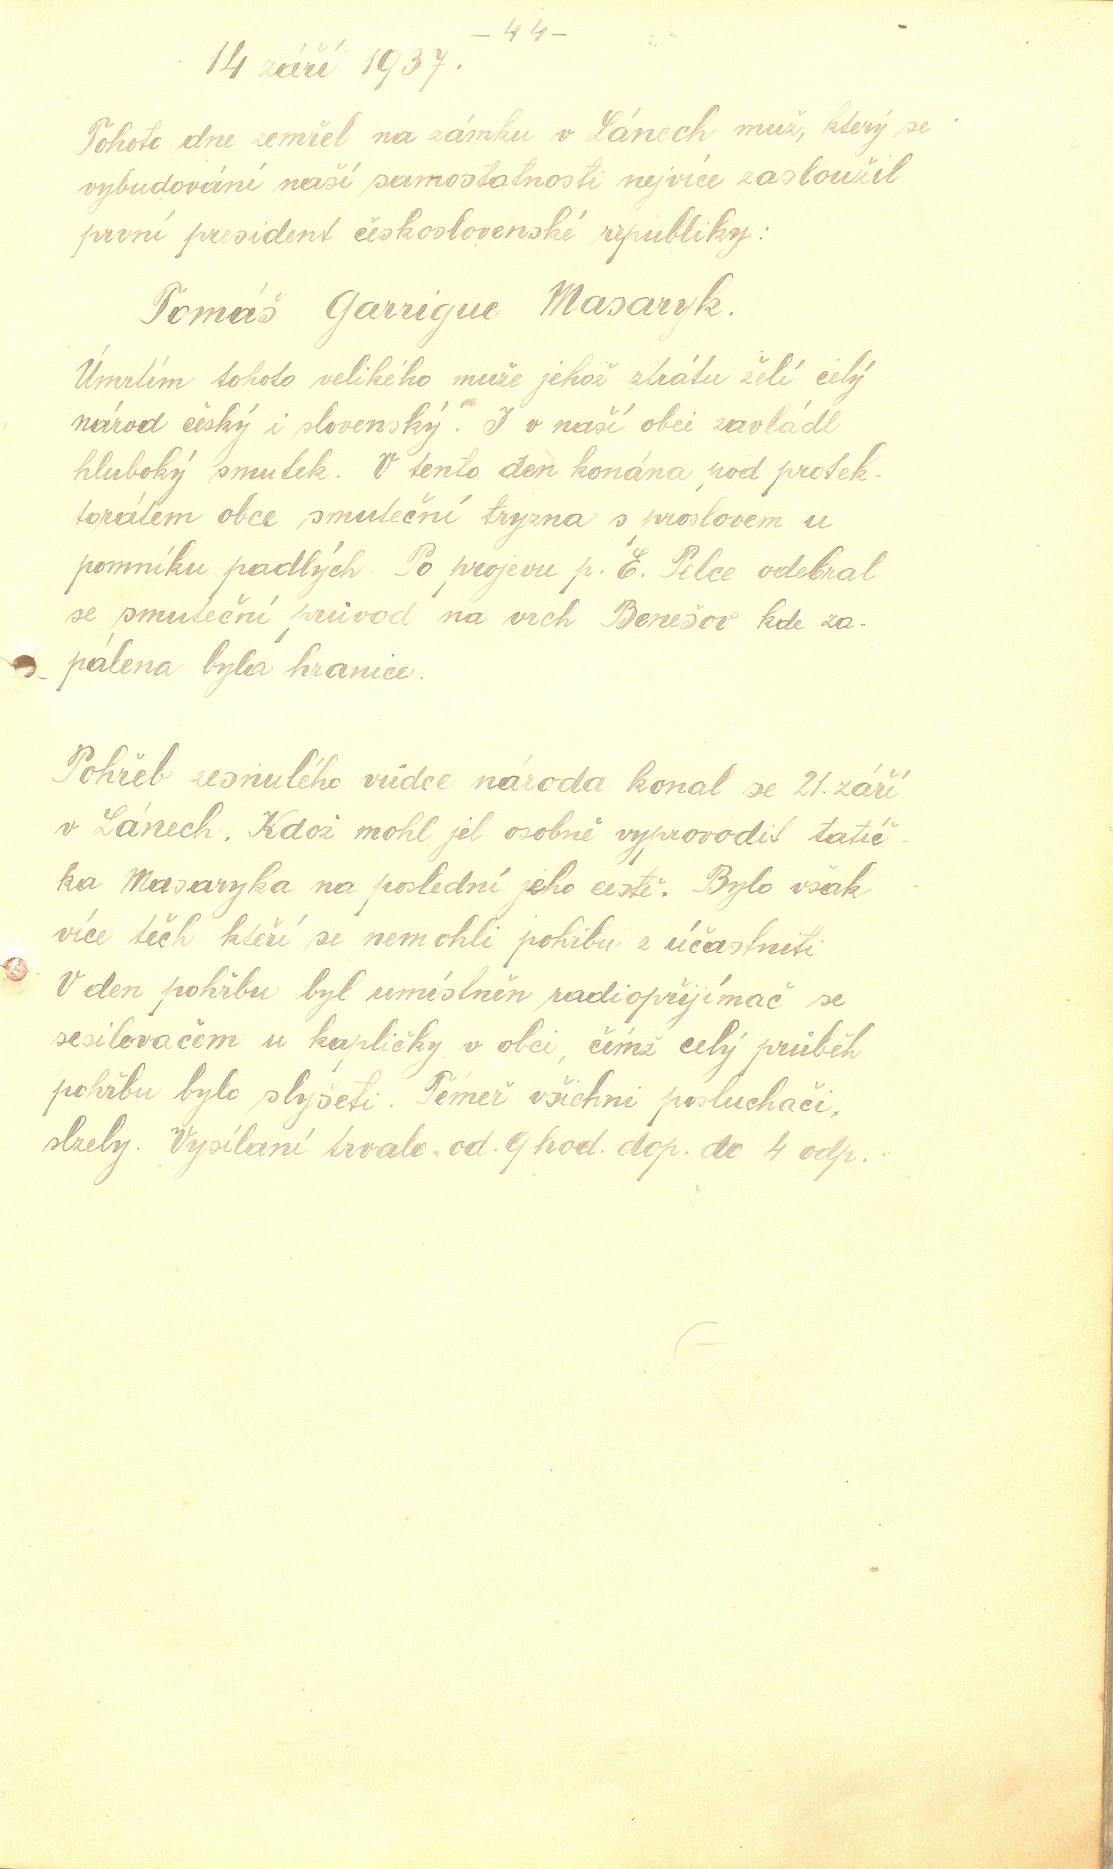 - 44 -
14 září 1937.
Tohoto dne zemřel na zámku v Lánech muž, který se
vybudování naší samostatnosti nejvíce zasloužil
první president československé republiky:
Tomáš Garrigue Masaryk.
Úmrtím tohoto velikého muže jehož ztrátu želí celý
národ český i slovenský. I v naší obci zavládl
hluboký smutek. V tento den konána pod protek-
torátem obce smuteční tryzna s proslovem u
pomníku padlých. Po projevu p. E. Pelce odebral
se smuteční průvod na vrch Benešov kde za-
pálena byla hranice.
Pohřeb zesnulého vůdce národa konal se 21. září
v Lánech. Kdož mohl jel osobně vyprovodit tatíč-
ka Masaryka na poslední jeho cestě. Bylo však
více těch kteří se nemohli pohřbu zúčastniti
V den pohřbu byl umístněn radiopřijímač se
sesilovačem u kapličky v obci, čímž celý průběh
pohřbu bylo slyšeti. Téměř všichni posluchači,
slzely. Vysílaní trvalo od 9 hod. dop. do 4 odp.